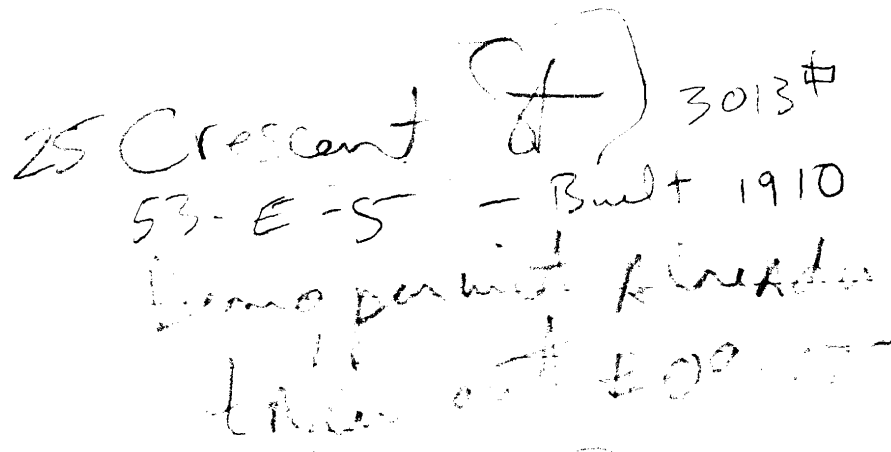 25 Crescent St } 3013#
53-E-5 - Built 1910
Demo permit Already
taken out